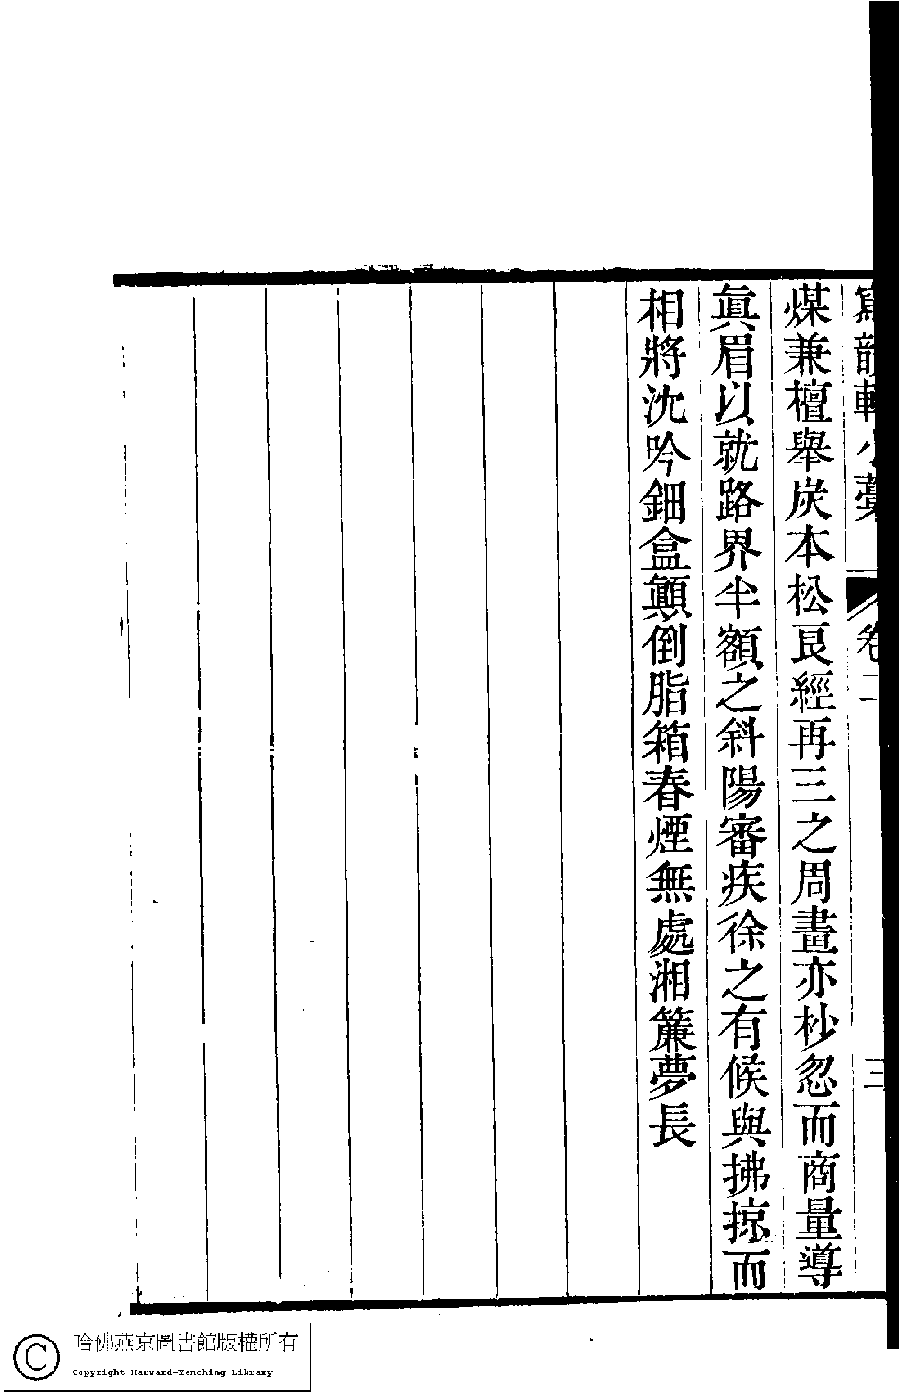 寫韻軒小藁 卷二 三
煤兼檀舉炭本松艮經再三之周畫亦杪忽而商量導
眞眉以就路界半額之斜陽審疾徐之有候與拂掠而
相將沈吟鈿盒顚倒脂箱春煙無處湘簾夢長
哈佛燕京圖書館版權所有
Copyright Harvard-Yenching Library